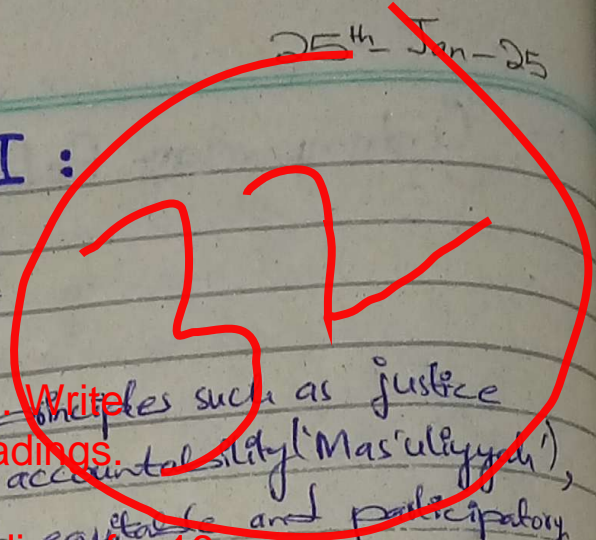 25th - Jan - 25
I :
32
. Write
principles such as justice
adings.
accountability ('Mas'uliyyah'),
equitable and participatory